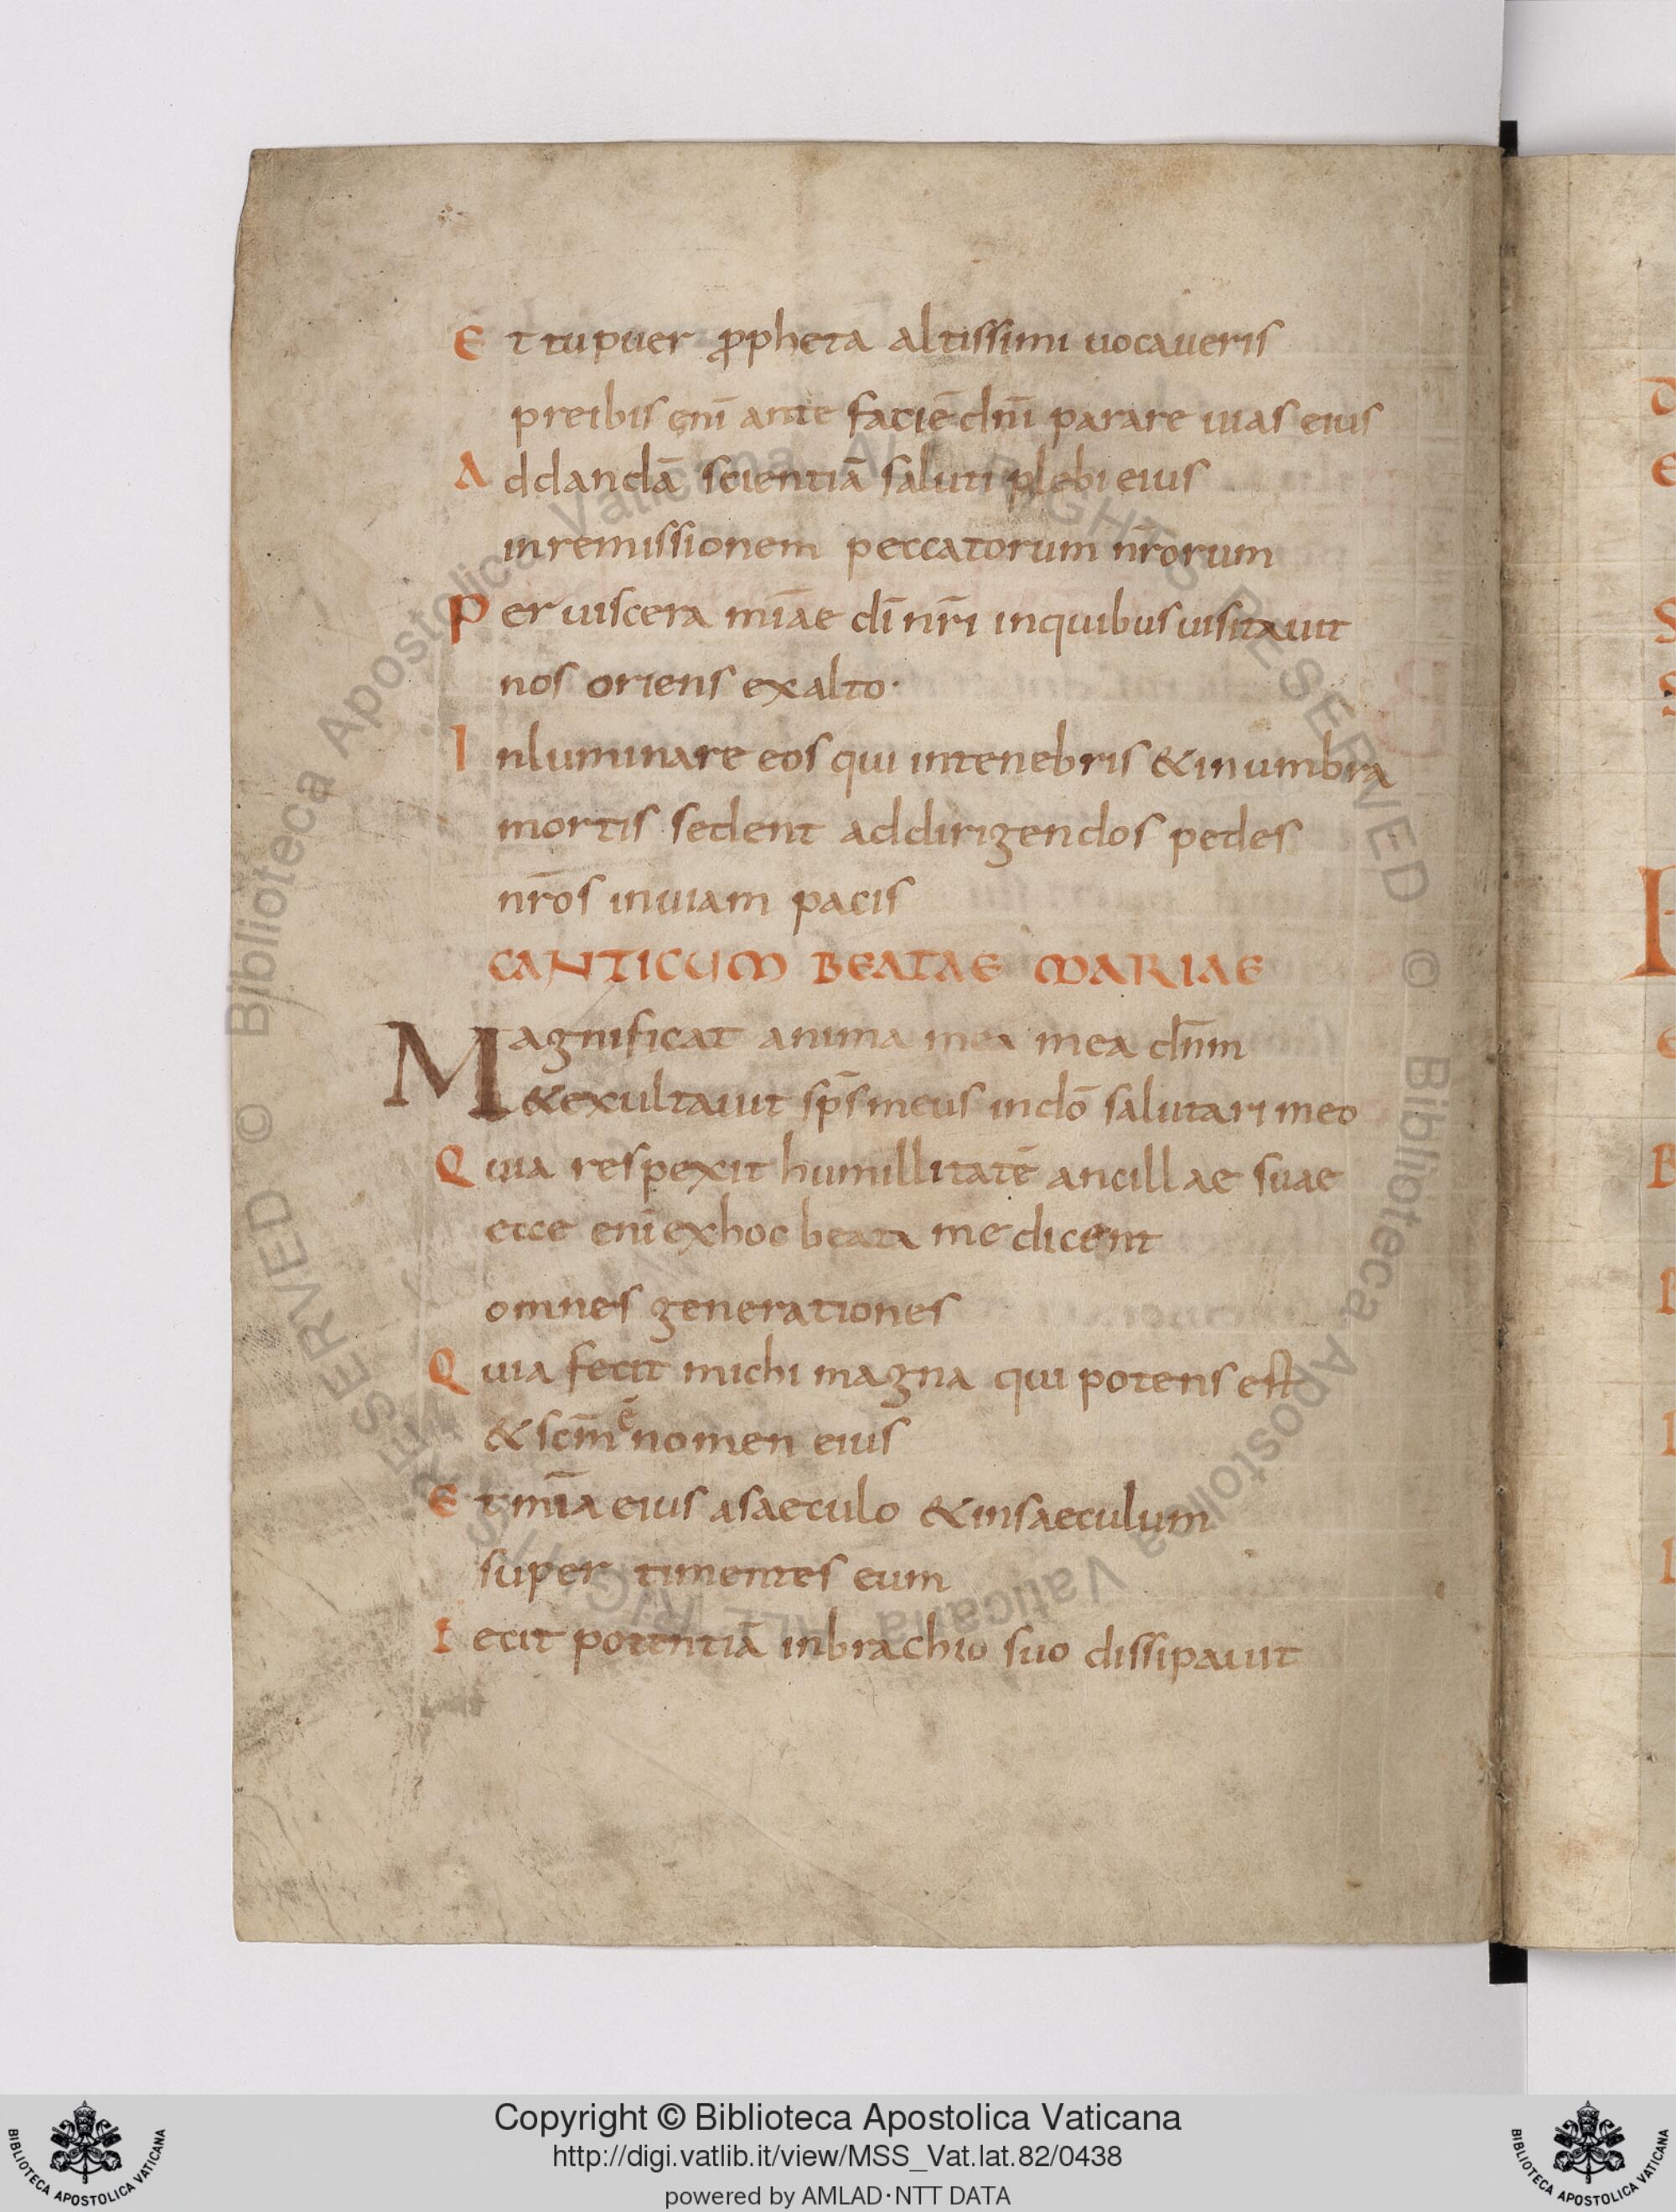 Et tu puer ꝓpheta altissimi uocaueris
preibis enī ante faciē dnī parare uias eius
Ad dandā scientiā saluti plebi eius
in remissionem peccatorum nr̄orum
Per uiscera mīae dī nr̄i in quibus uisitauit
nos oriens ex alto·
Inluminare eos qui in tenebris & in umbra
mortis sedent ad dirigendos pedes
nr̄os in uiam pacis
CANTICUM BEATAE MARIAE
Magnificat anima mea mea dn̄m
& exultauit sp̄s meus in dō salutari meo
Quia respexit humillitatē ancillae suae
ecce enī ex hoc beata me dicent
omnes generationes
Quia fecit michi magna qui potens est
& sc̄m ē nomen eius
Et mīa eius a saeculo & in saeculum
super timentes eum
Fecit potentiā in brachio suo dissipauit
© Biblioteca Apostolica Vaticana ALL RIGHTS RESERVED © Biblioteca Apostolica Vaticana ALL RIGHTS RESERVED
Copyright © Biblioteca Apostolica Vaticana
http://digi.vatlib.it/view/MSS_Vat.lat.82/0438
powered by AMLAD·NTT DATA
BIBLIOTECA APOSTOLICA VATICANA
BIBLIOTECA APOSTOLICA VATICANA